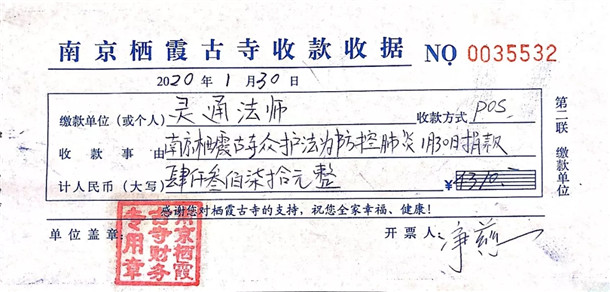 南京栖霞古寺收款收据 NO 0035532
2020 年 1 月 30 日
缴款单位(或个人) 灵通法师 收款方式 POS
收款事由 南京栖霞古寺众护法为防控肺炎1月30日捐款
计人民币(大写) 肆仟叁佰柒拾元整 ¥
感谢您对栖霞古寺的支持，祝您全家幸福、健康！
单位盖章： 开票人：
南京栖霞
古寺财务
专用章
第二联 缴款单位